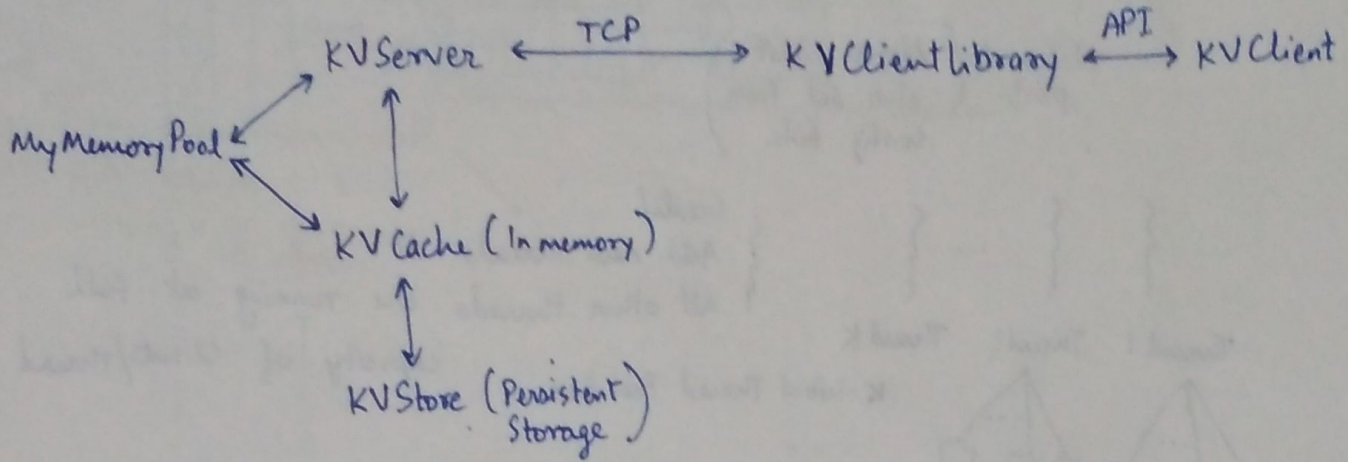 KVServer TCP KVClientlibrary API KVClient
MyMemoryPool
KVCache (In memory)
KVStore (Persistent
Storage)